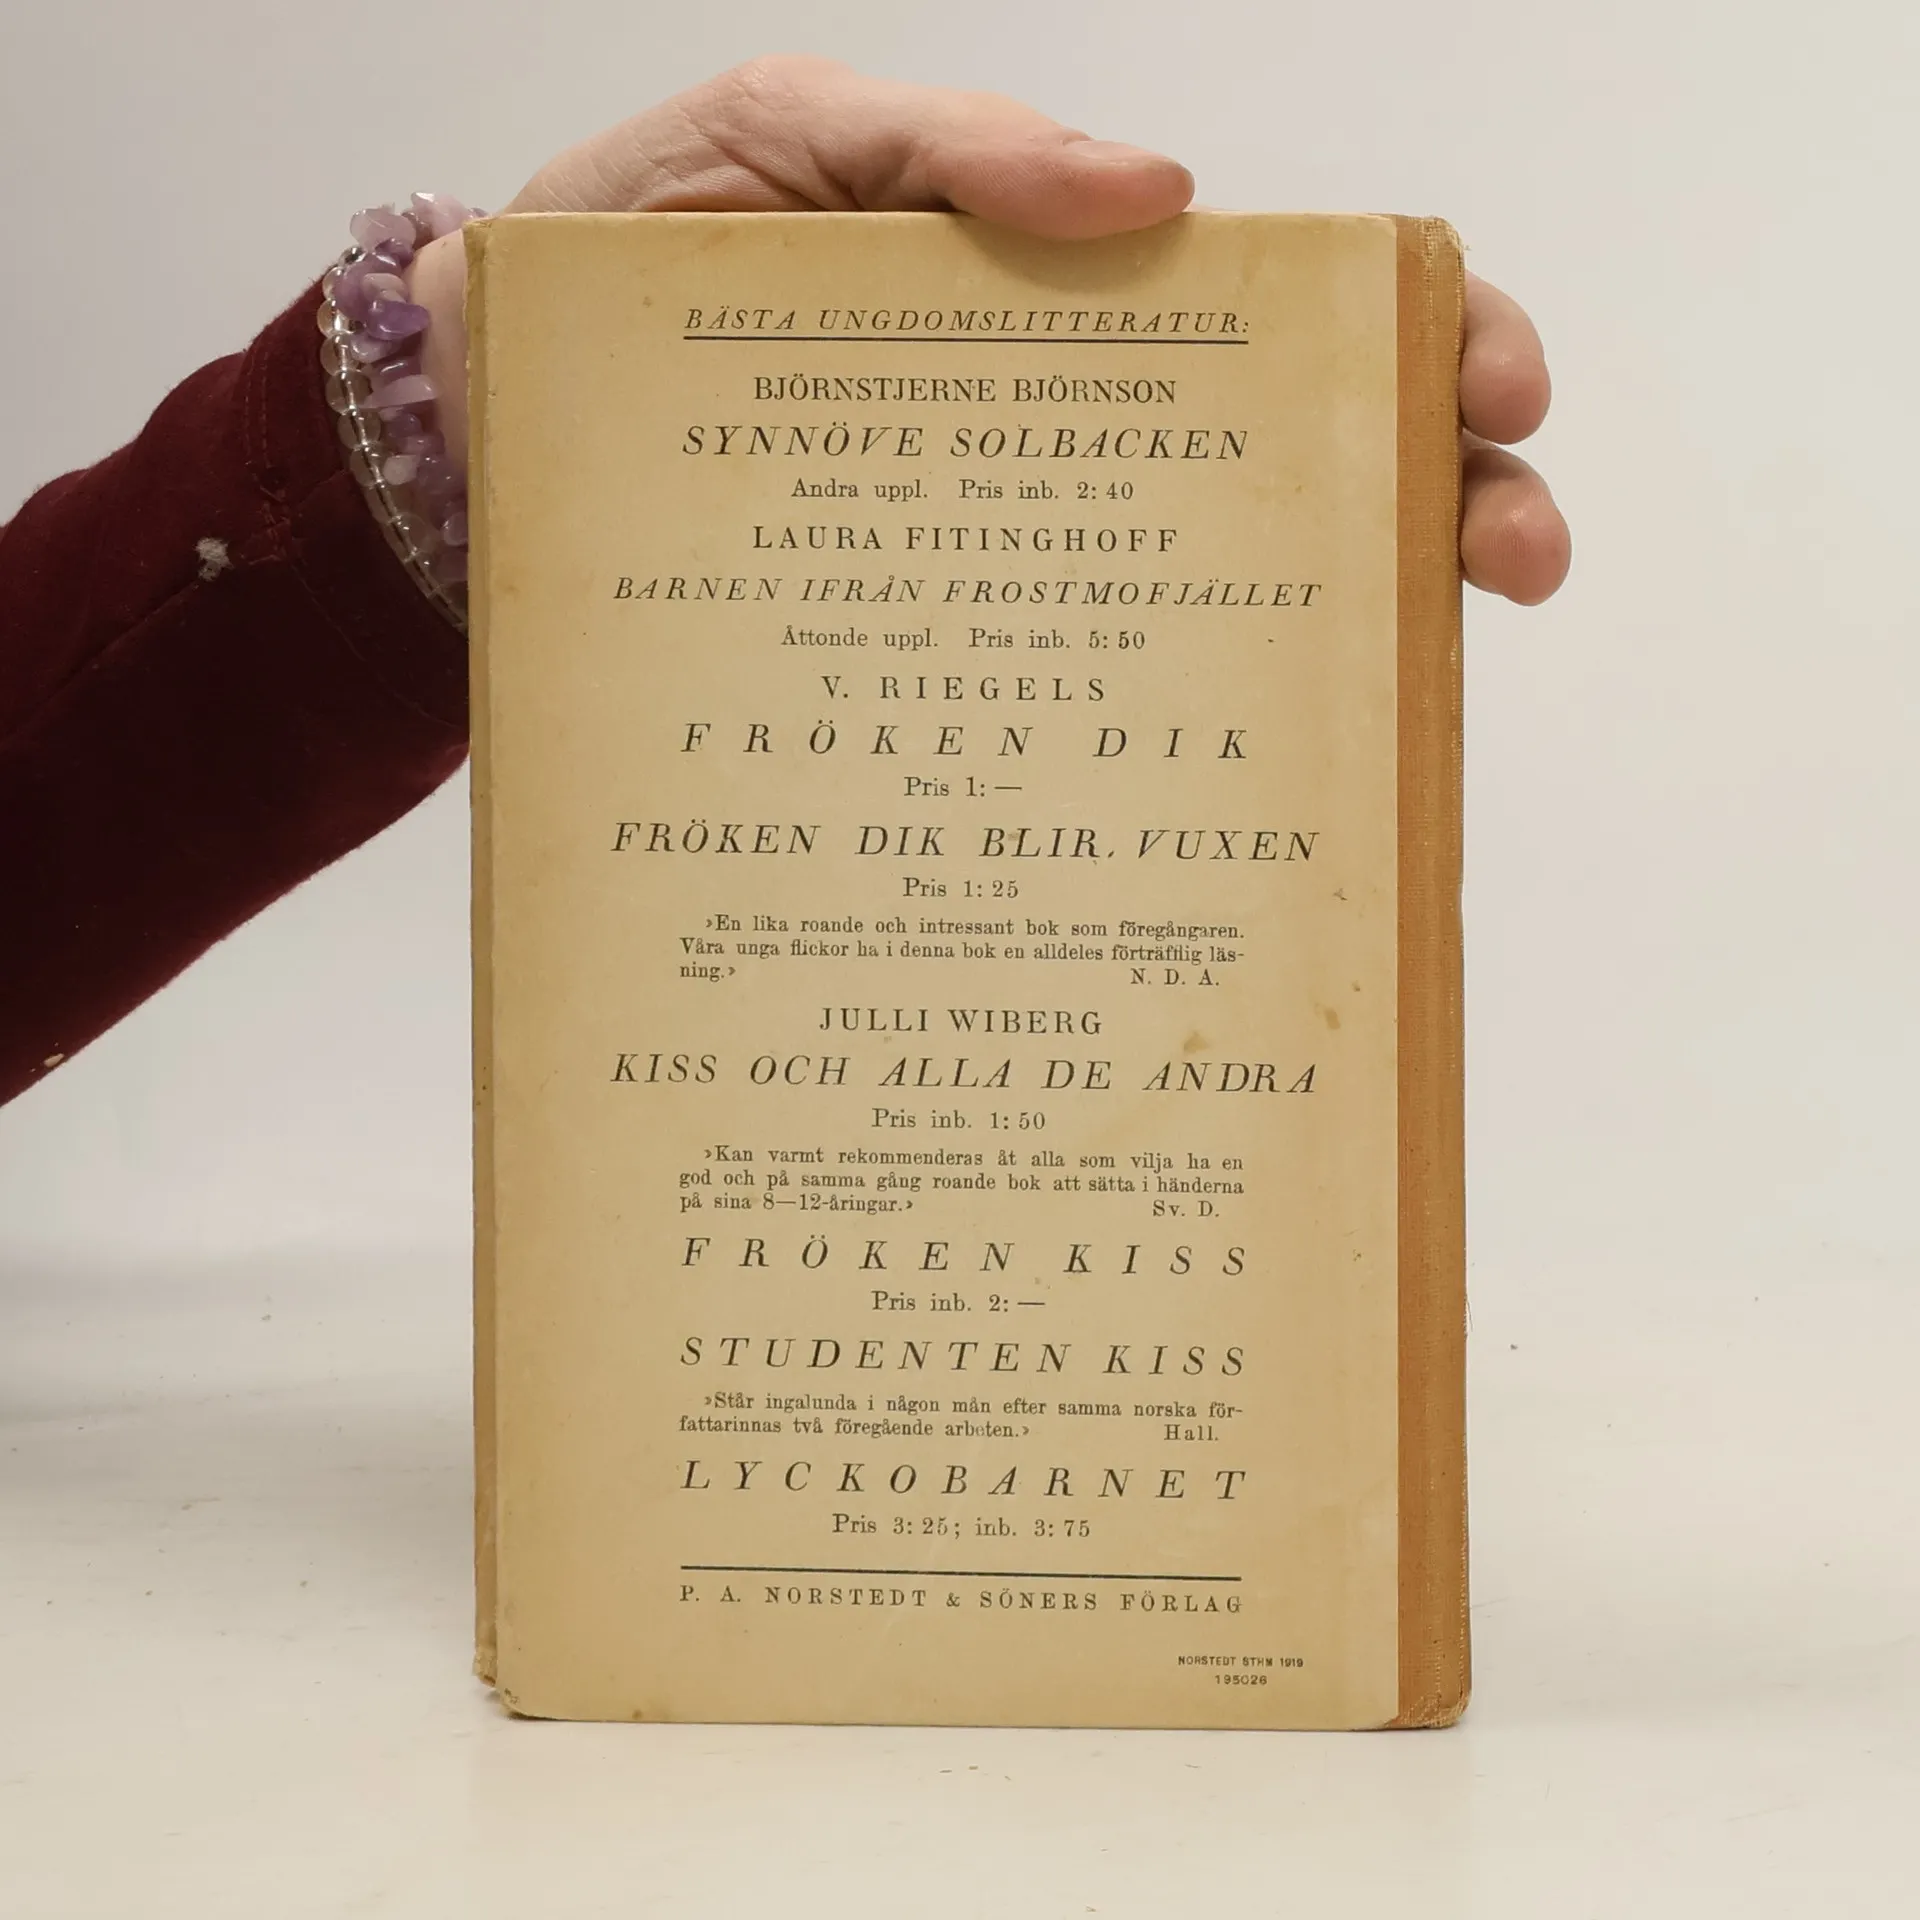 BÄSTA UNGDOMSLITTERATUR:
BJÖRNSTJERNE BJÖRNSON
SYNNÖVE SOLBACKEN
Andra uppl. Pris inb. 2: 40
LAURA FITINGHOFF
BARNEN IFRÅN FROSTMOFJÄLLET
Åttonde uppl. Pris inb. 5: 50
V. RIEGELS
FRÖKEN DIK
Pris 1: —
FRÖKEN DIK BLIR VUXEN
Pris 1: 25
»En lika roande och intressant bok som föregångaren.
Våra unga flickor ha i denna bok en alldeles förträfflig läs-
ning.» N. D. A.
JULLI WIBERG
KISS OCH ALLA DE ANDRA
Pris inb. 1: 50
»Kan varmt rekommenderas åt alla som vilja ha en
god och på samma gång roande bok att sätta i händerna
på sina 8—12-åringar.» Sv. D.
FRÖKEN KISS
Pris inb. 2: —
STUDENTEN KISS
»Står ingalunda i någon mån efter samma norska för-
fattarinnas två föregående arbeten.» Hall.
LYCKOBARNET
Pris 3: 25; inb. 3: 75
P. A. NORSTEDT & SÖNERS FÖRLAG
NORSTEDT STHM 1919
195026